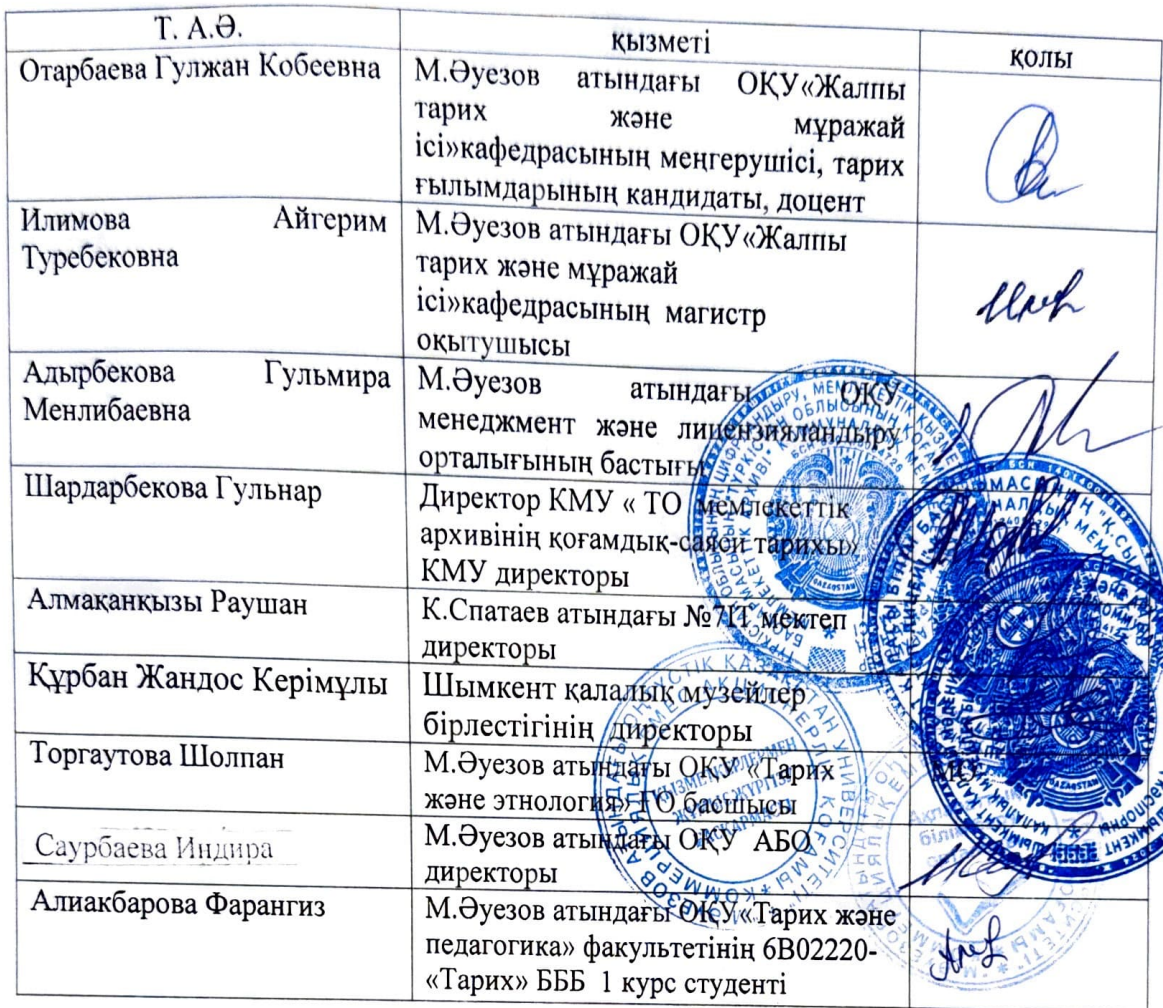 Т. А.Ә. қызметі қолы
Отарбаева Гулжан Кобеевна
М.Әуезов атындағы ОҚУ«Жалпы
тарих және мұражай
ісі»кафедрасының меңгерушісі, тарих
ғылымдарының кандидаты, доцент
Илимова Айгерим
Туребековна
М.Әуезов атындағы ОҚУ«Жалпы
тарих және мұражай
ісі»кафедрасының магистр
оқытушысы
Адырбекова Гульмира
Менлибаевна
М.Әуезов атындағы ОҚУ
менеджмент және лицензияландыру
орталығының бастығы
Шардарбекова Гульнар
Директор КМУ « ТО мемлекеттік
архивінің қоғамдық-саяси тарихы»
КМУ директоры
Алмақанқызы Раушан
К.Спатаев атындағы мектеп
директоры
Құрбан Жандос Керімұлы
Шымкент қалалық музейлер
бірлестігінің директоры
Торгаутова Шолпан
М.Әуезов атындағы ОҚУ «Тарих
және этнология» ҒО басшысы
Саурбаева Индира
М.Әуезов атындағы ОҚУ АБО
директоры
Алиакбарова Фарангиз
М.Әуезов атындағы ОҚУ«Тарих және
педагогика» факультетінің 6В02220-
«Тарих» БББ 1 курс студенті
ҚЫЗМЕТКЕРЛЕРМЕН
ЖҰМЫС ЖҮРГІЗУ
БАСҚАРМАСЫ
QAZAQSTAN